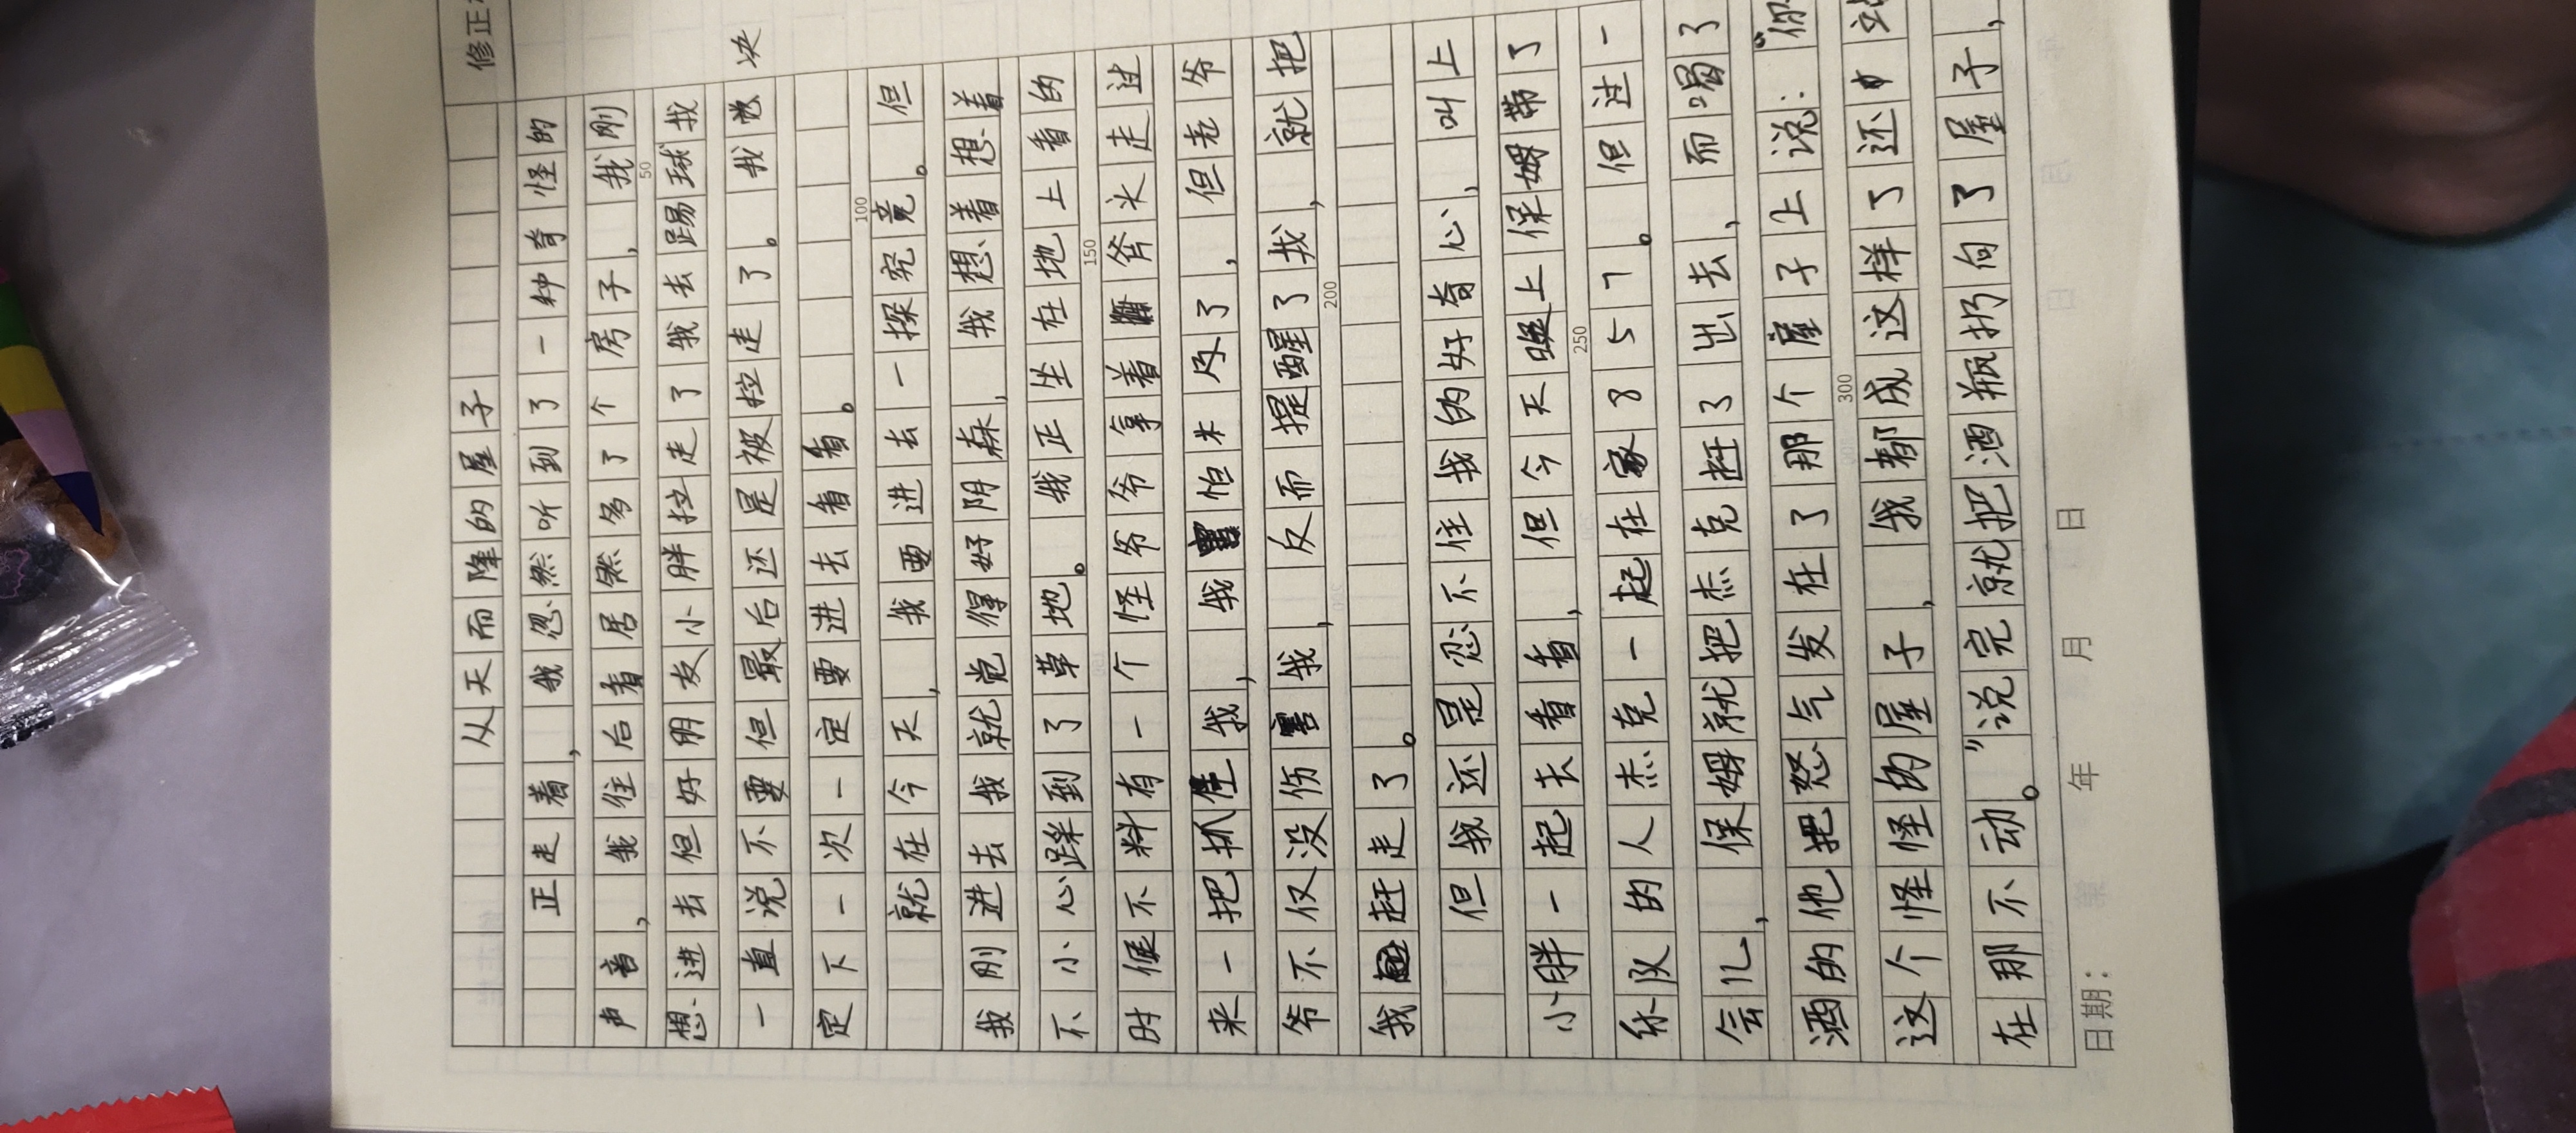 修正
从天而隆的屋子
正走着，我忽然听到了一种奇怪的
声音，我往后看居然多了个房子，我刚
想进去但好朋友小胖拉走了我去踢球我
一直说不要但最后还是被拉走了。我决
定下一次一定要进去看看。
就在今天，我要进去一探究竟。但
我刚进去我就觉得好阴森，我想着想着
不小心踩到了草地。我正坐在地上看的
时候不料有一个怪爷爷拿着斧头走过
来一把抓住我，我怕米及了，但老爷
爷不仅没伤害我，反而提醒了我，就把
我赶走了。
但我还是忍不住我的好奇心，叫上
小胖一起去看看，但今天晚上保姆带了
队的人杰克一起在家857。但过一
会儿，保姆就把杰克赶了出去，而喝了
酒的他把怒气发在了那个屋子上说：“你
这个怪怪的屋子，我都成这样了还站
在那不动。”说完就把酒瓶扔向了屋子，
50
100
150
200
250
300
日期： 年 月 日